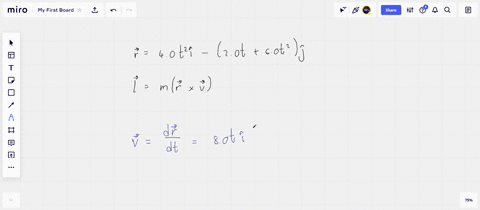 miro My First Board Share
r⃗ = 4.0t²î − (2.0t + 6.0t²)ĵ
l⃗ = m(r⃗ × v⃗)
v⃗ = dr⃗/dt = 8.0t î
79%